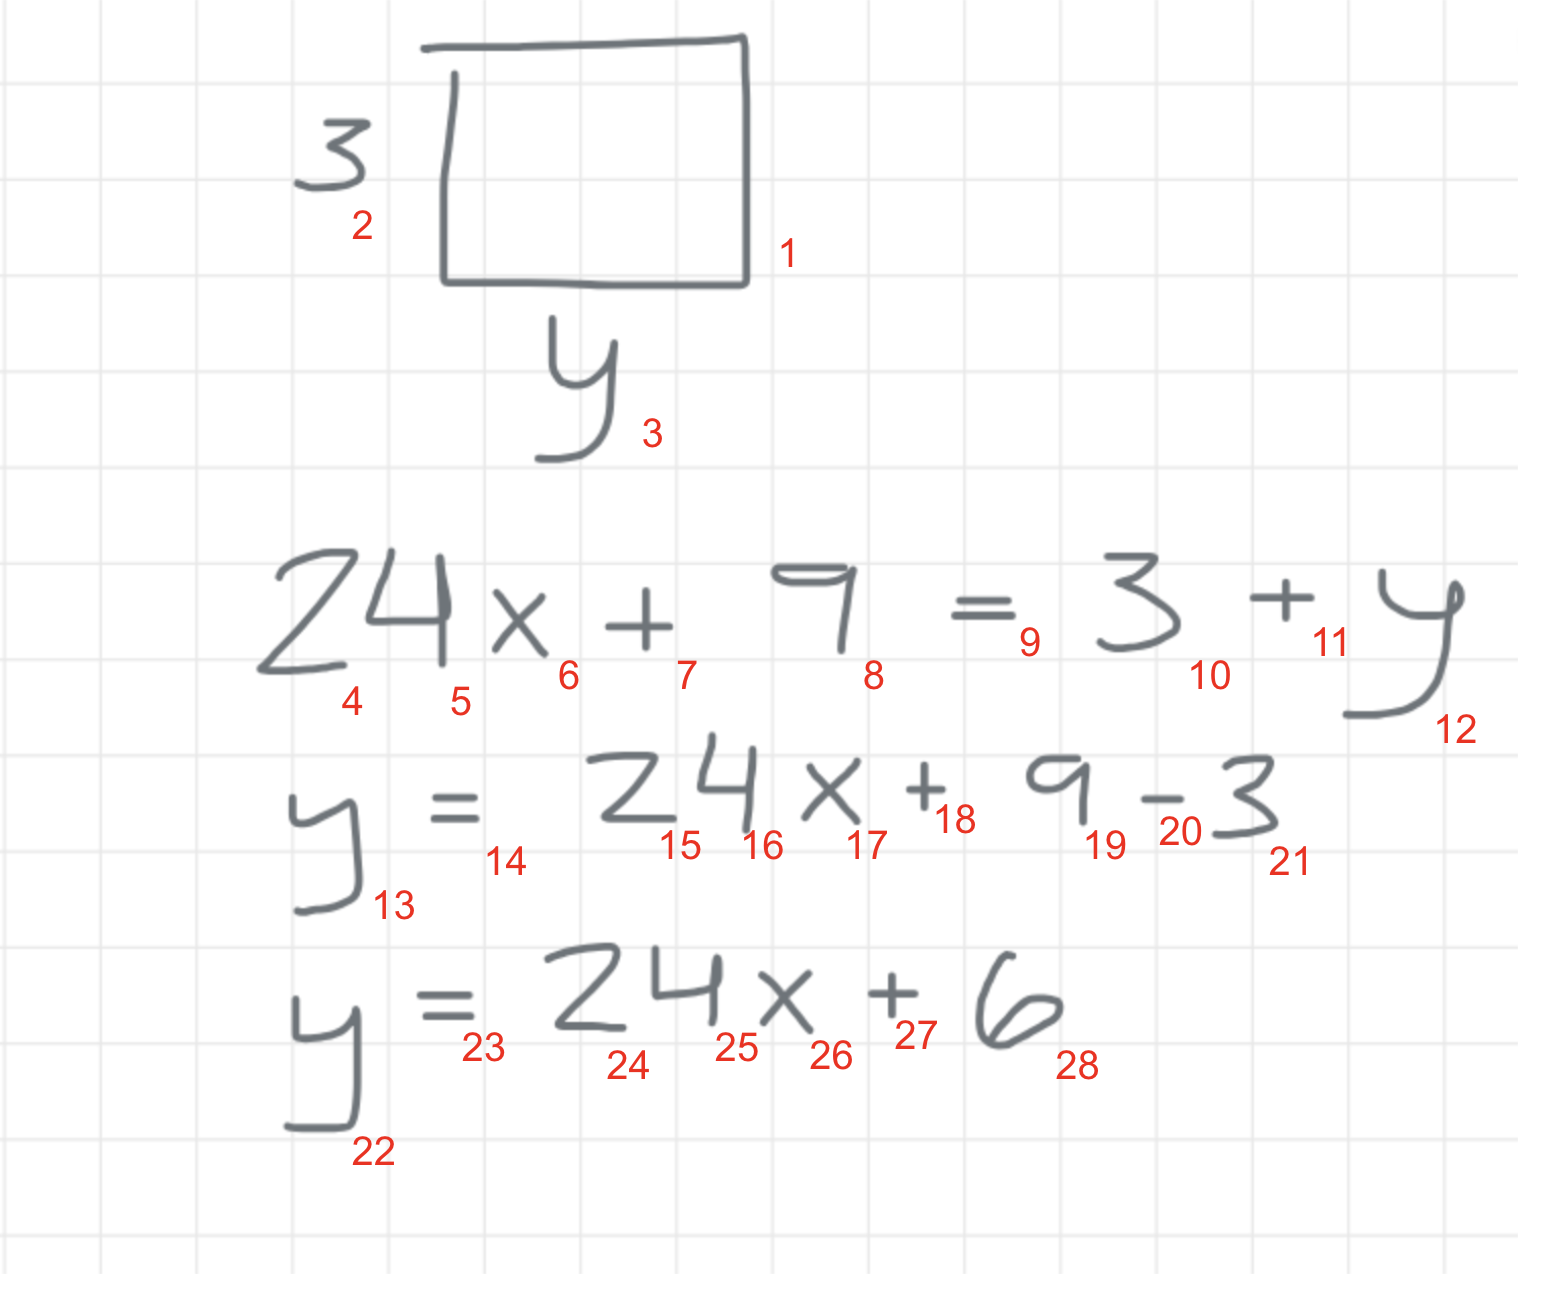 3
2
1
y
3
24x + 9 = 3 + y
4 5 6 7 8 9 10 11 12
y = 24x + 9 - 3
13 14 15 16 17 18 19 20 21
y = 24x + 6
22 23 24 25 26 27 28